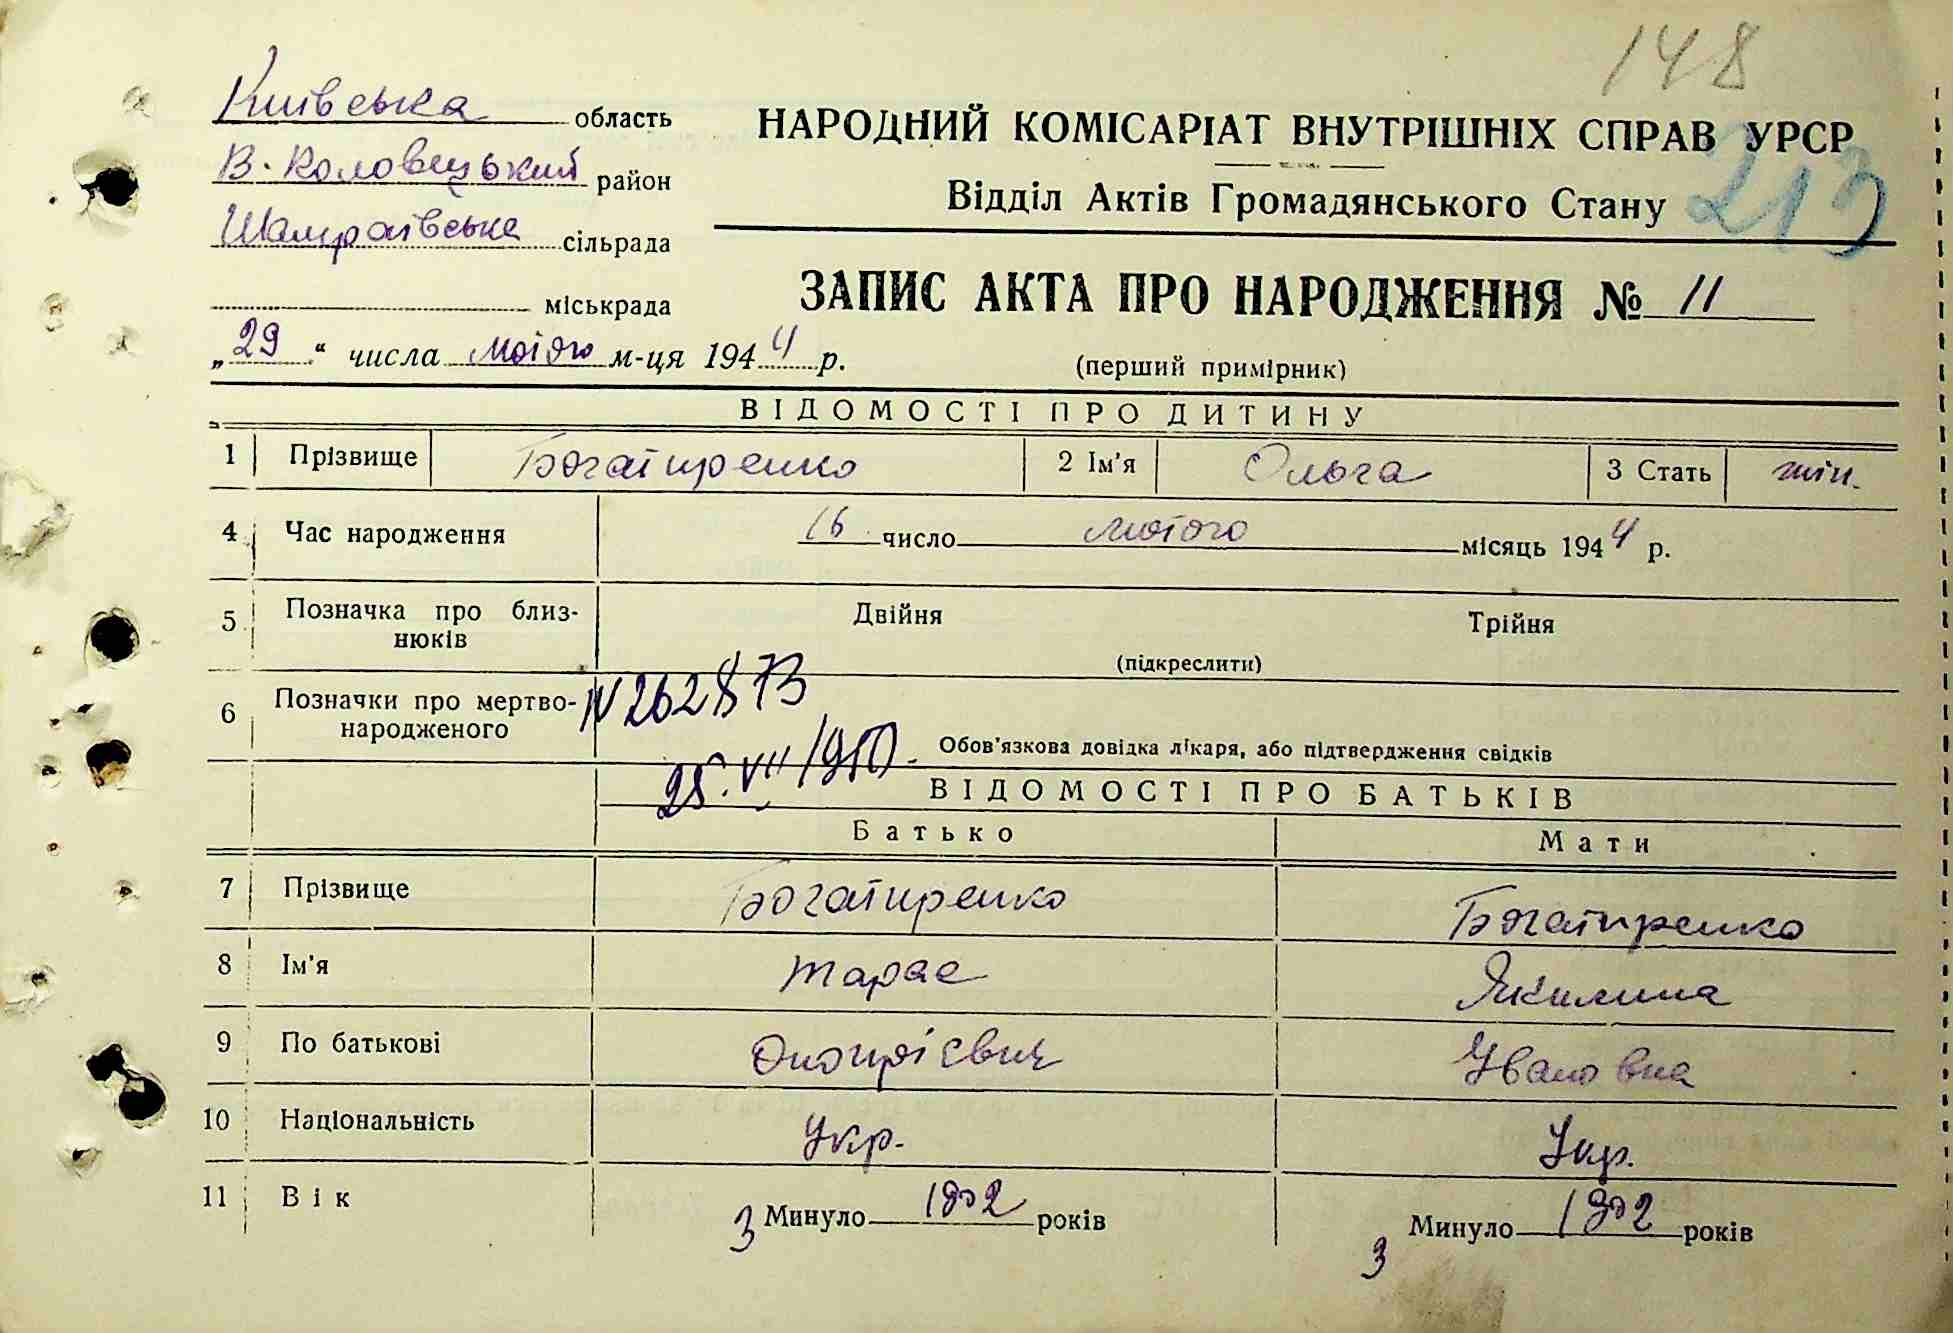 148
Київська область
НАРОДНИЙ КОМІСАРІАТ ВНУТРІШНІХ СПРАВ УРСР
В. Каловецький район
Відділ Актів Громадянського Стану 213
Шамраївська сільрада
міськрада
ЗАПИС АКТА ПРО НАРОДЖЕННЯ № 11
„29“ числа лютого м-ця 1944 р.
(перший примірник)
ВІДОМОСТІ ПРО ДИТИНУ
1 Прізвище Богатиренко 2 Ім'я Ольга 3 Стать жін.
4 Час народження 16 число лютого місяць 1944 р.
5 Позначка про близ- Двійня Трійня
нюків
(підкреслити)
6 Позначки про мертво- N 262873
народженого
Обов'язкова довідка лікаря, або підтвердження свідків
25.VII 1950
ВІДОМОСТІ ПРО БАТЬКІВ
Батько Мати
7 Прізвище Богатиренко Богатиренко
8 Ім'я Тарас Якилина
9 По батькові Онопрієвич Ивановна
10 Національність Укр. Укр.
11 Вік З Минуло 1902 років З Минуло 1902 років